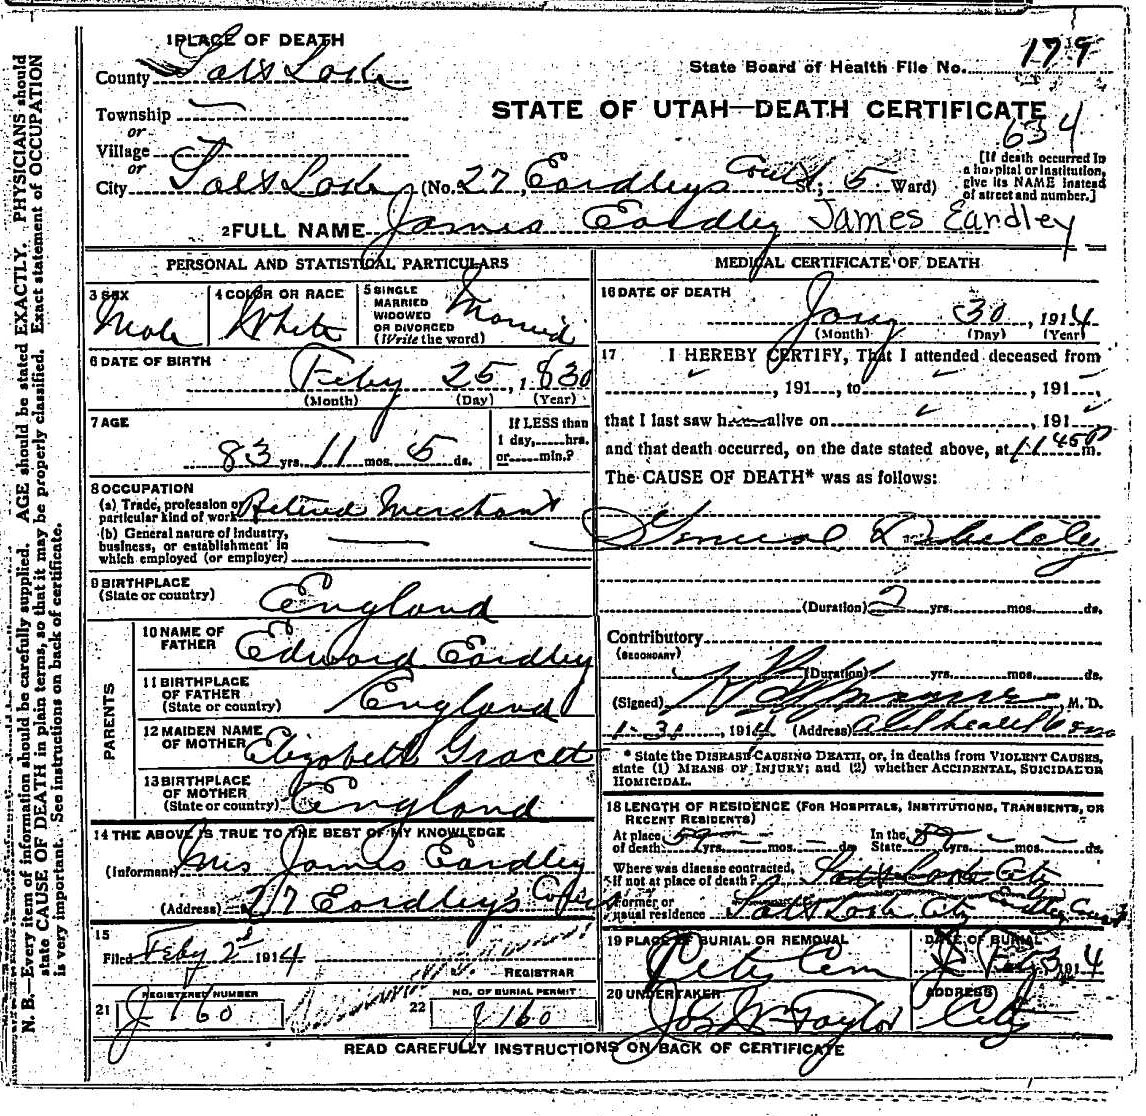 N. B.—Every item of information should be carefully supplied. AGE should be stated EXACTLY. PHYSICIANS should
state CAUSE OF DEATH in plain terms, so that it may be properly classified. Exact statement of OCCUPATION
is very important. See instructions on back of certificate.
1 PLACE OF DEATH
County Salt Lake
State Board of Health File No. 179
Township
STATE OF UTAH—DEATH CERTIFICATE
634
or
Village
or
City Salt Lake (No. 27, Eardleys Court St.; 5 Ward)
[If death occurred in
a hospital or institution,
give its NAME instead
of street and number.]
2 FULL NAME James Eardley James Eardley
PERSONAL AND STATISTICAL PARTICULARS
3 SEX
Male
4 COLOR OR RACE
White
5 SINGLE
MARRIED
WIDOWED
OR DIVORCED
(Write the word)
Married
6 DATE OF BIRTH
Feby 25, 1830
(Month) (Day) (Year)
7 AGE
83 yrs. 11 mos. 5 ds.
If LESS than
1 day, hrs.
or min.?
8 OCCUPATION
(a) Trade, profession or
particular kind of work Retired Merchant
(b) General nature of Industry,
business, or establishment in
which employed (or employer)
9 BIRTHPLACE
(State or country) England
PARENTS
10 NAME OF
FATHER Edward Eardley
11 BIRTHPLACE
OF FATHER
(State or country) England
12 MAIDEN NAME
OF MOTHER Elizabeth
13 BIRTHPLACE
OF MOTHER
(State or country) England
14 THE ABOVE IS TRUE TO THE BEST OF MY KNOWLEDGE
(Informant) Mrs James Eardley
(Address) 27 Eardley's Court
15
Filed Feby 2nd 1914
REGISTRAR
21 REGISTERED NUMBER
J 160
22 NO. OF BURIAL PERMIT
J 160
MEDICAL CERTIFICATE OF DEATH
16 DATE OF DEATH
Jany 30, 1914
(Month) (Day) (Year)
17 I HEREBY CERTIFY, That I attended deceased from
, 191 , to , 191 ,
that I last saw h alive on , 191
and that death occurred, on the date stated above, at 11 45 P m.
The CAUSE OF DEATH* was as follows:
General Debility
(Duration) 2 yrs. mos. ds.
Contributory
(SECONDARY)
(Duration) yrs. mos. ds.
(Signed) , M. D.
1-31, 1914 (Address)
* State the DISEASE CAUSING DEATH, or, in deaths from VIOLENT CAUSES,
state (1) MEANS OF INJURY; and (2) whether ACCIDENTAL, SUICIDAL OR
HOMICIDAL.
18 LENGTH OF RESIDENCE (FOR HOSPITALS, INSTITUTIONS, TRANSIENTS, OR
RECENT RESIDENTS)
At place
of death 59 yrs. mos. ds.
In the
State 59 yrs. mos. ds.
Where was disease contracted,
if not at place of death? Salt Lake City
Former or
usual residence Salt Lake City Eardley Court
19 PLACE OF BURIAL OR REMOVAL
City Cem
DATE OF BURIAL
Feb 3 1914
20 UNDERTAKER
Jos Wm Taylor
ADDRESS
City
READ CAREFULLY INSTRUCTIONS ON BACK OF CERTIFICATE